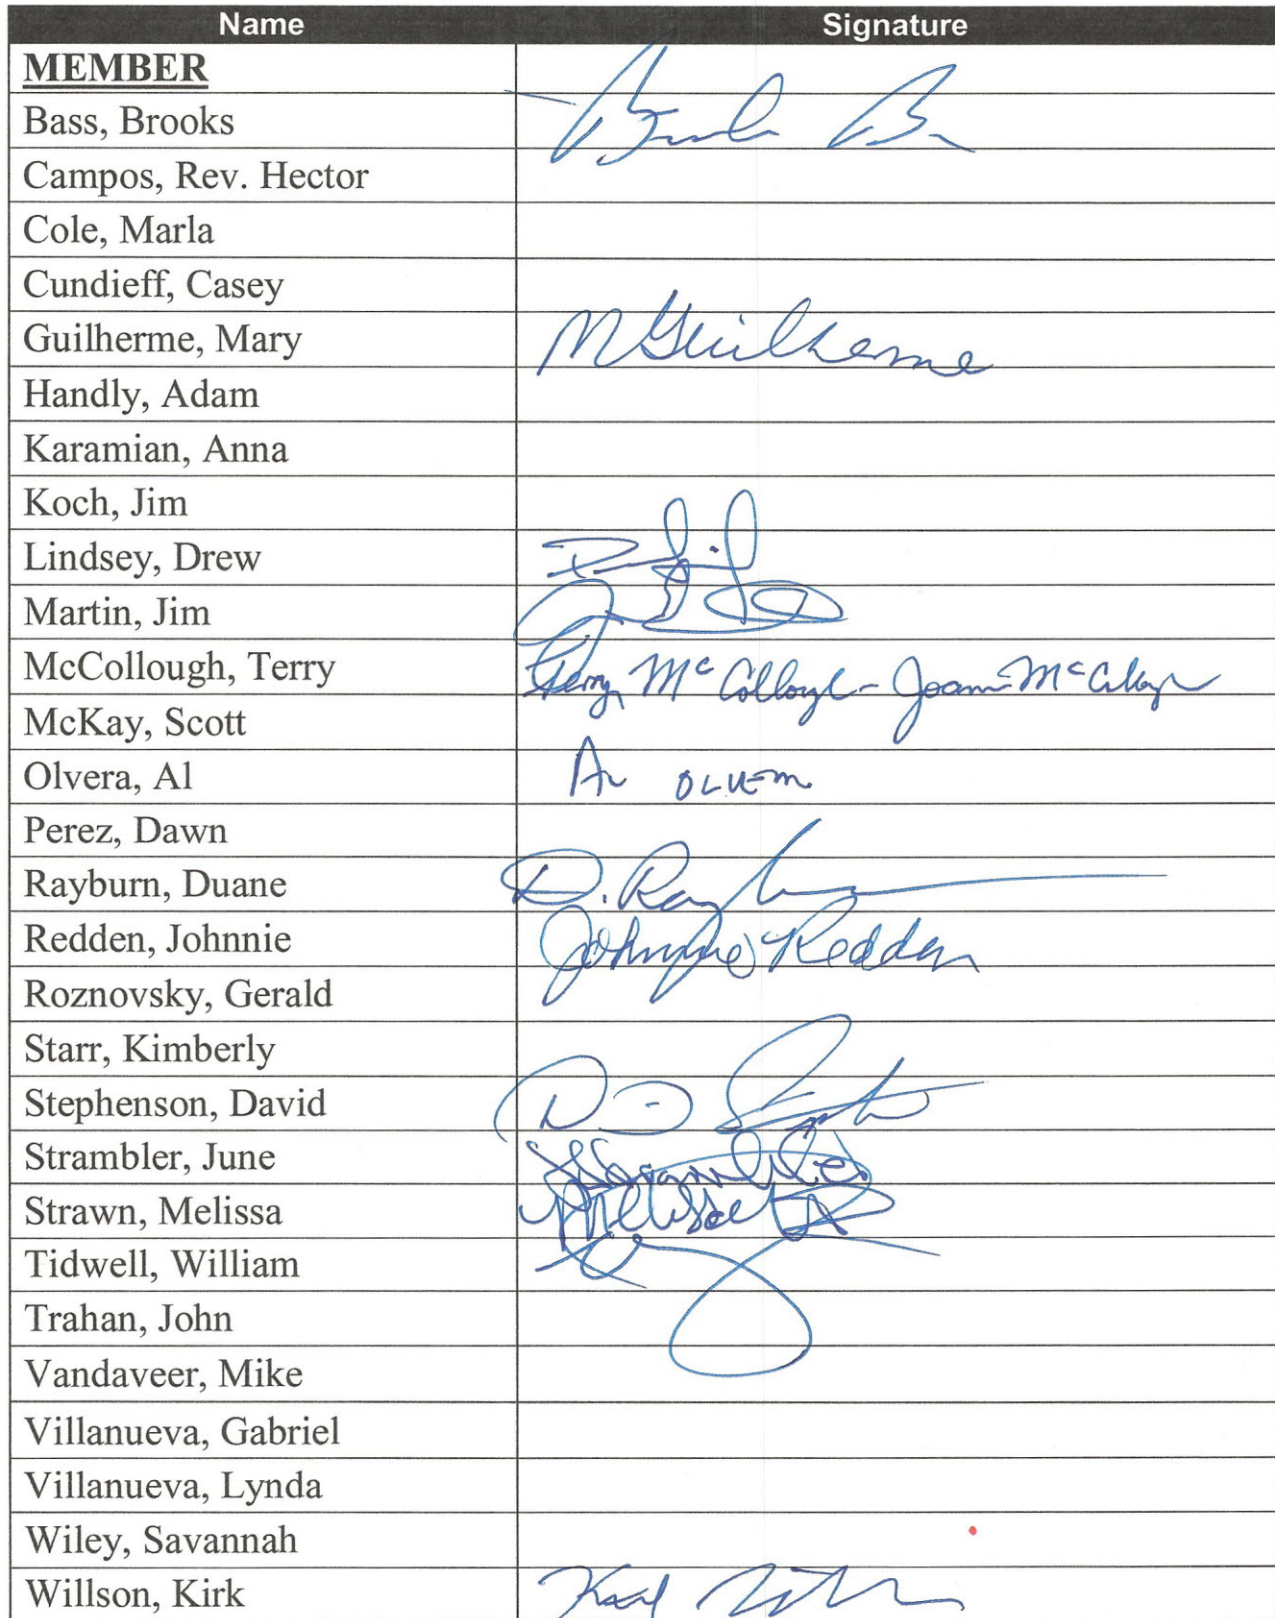 Name Signature
MEMBER
Bass, Brooks
Campos, Rev. Hector
Cole, Marla
Cundieff, Casey
Guilherme, Mary M Guilherme
Handly, Adam
Karamian, Anna
Koch, Jim
Lindsey, Drew
Martin, Jim
McCollough, Terry Terry McCollough - Joann McCollough
McKay, Scott
Olvera, Al Al OLVERA
Perez, Dawn
Rayburn, Duane D. Rayburn
Redden, Johnnie Johnnie Redden
Roznovsky, Gerald
Starr, Kimberly
Stephenson, David
Strambler, June
Strawn, Melissa Melissa
Tidwell, William
Trahan, John
Vandaveer, Mike
Villanueva, Gabriel
Villanueva, Lynda
Wiley, Savannah
Willson, Kirk